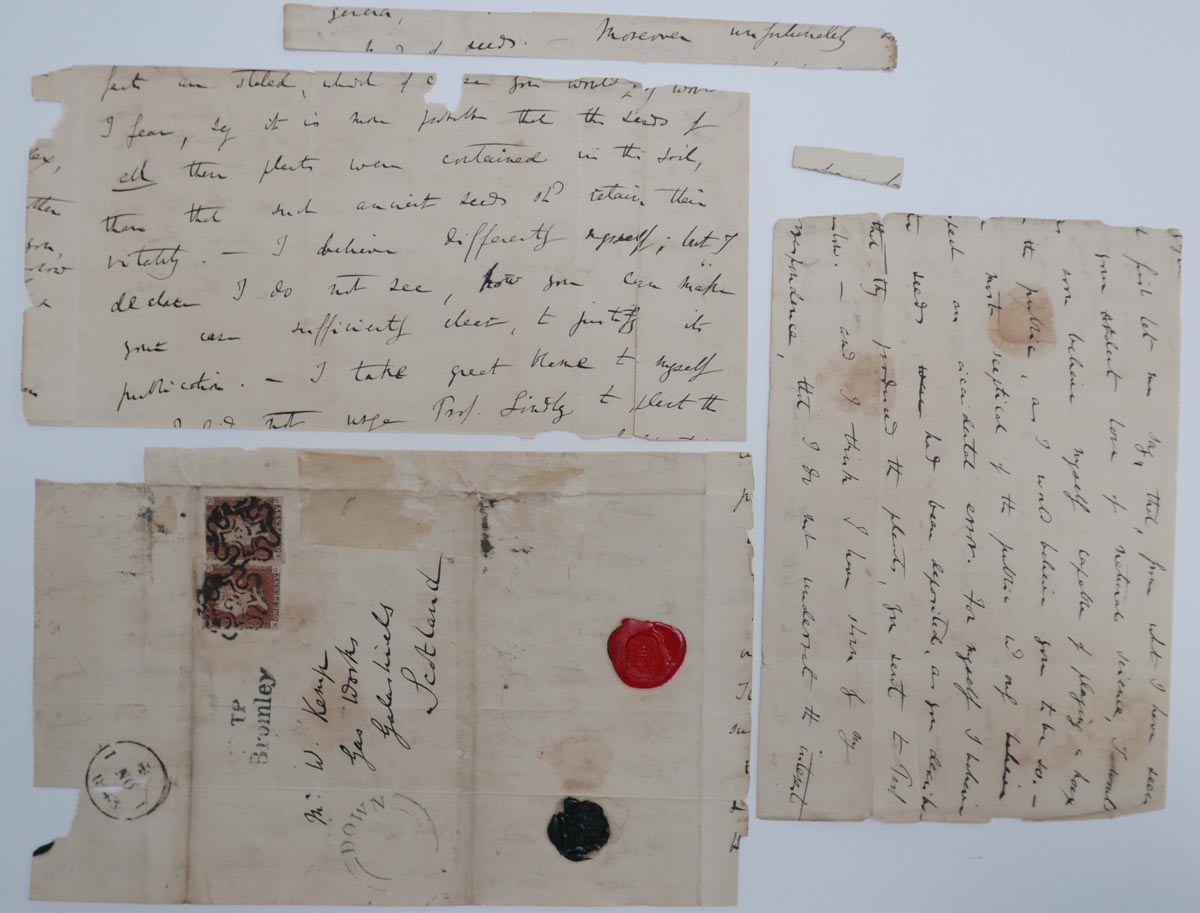 genera,
seeds. — Moreover unfortunately
facts are stated, which of you would, if
I fear, say it is more probable that the seeds of
all these plants were contained in the soil,
than that such ancient seeds shd retain their
vitality. — I believe differently myself; but I
declare I do not see, how you can make
your case sufficiently clear, to justify its
publication. — I take great blame to myself
I did not urge Prof. Lindly to plant the
first let me say, that, from what I have seen
your ardent love of natural science, I would
soon believe myself capable of playing a hoax
the public, as I would believe you to be so. —
most sceptical of the public wd only believe
an accidental error. For myself I believe
seeds had been deposited, as you describe
that they produced the plants, you sent to Prof.
— and I think I have shown by my
respondence, that I do not underrate the interest
TP
Bromley
Mr. W. Kemp
Gas Works
Galashiels
Scotland
DOWN